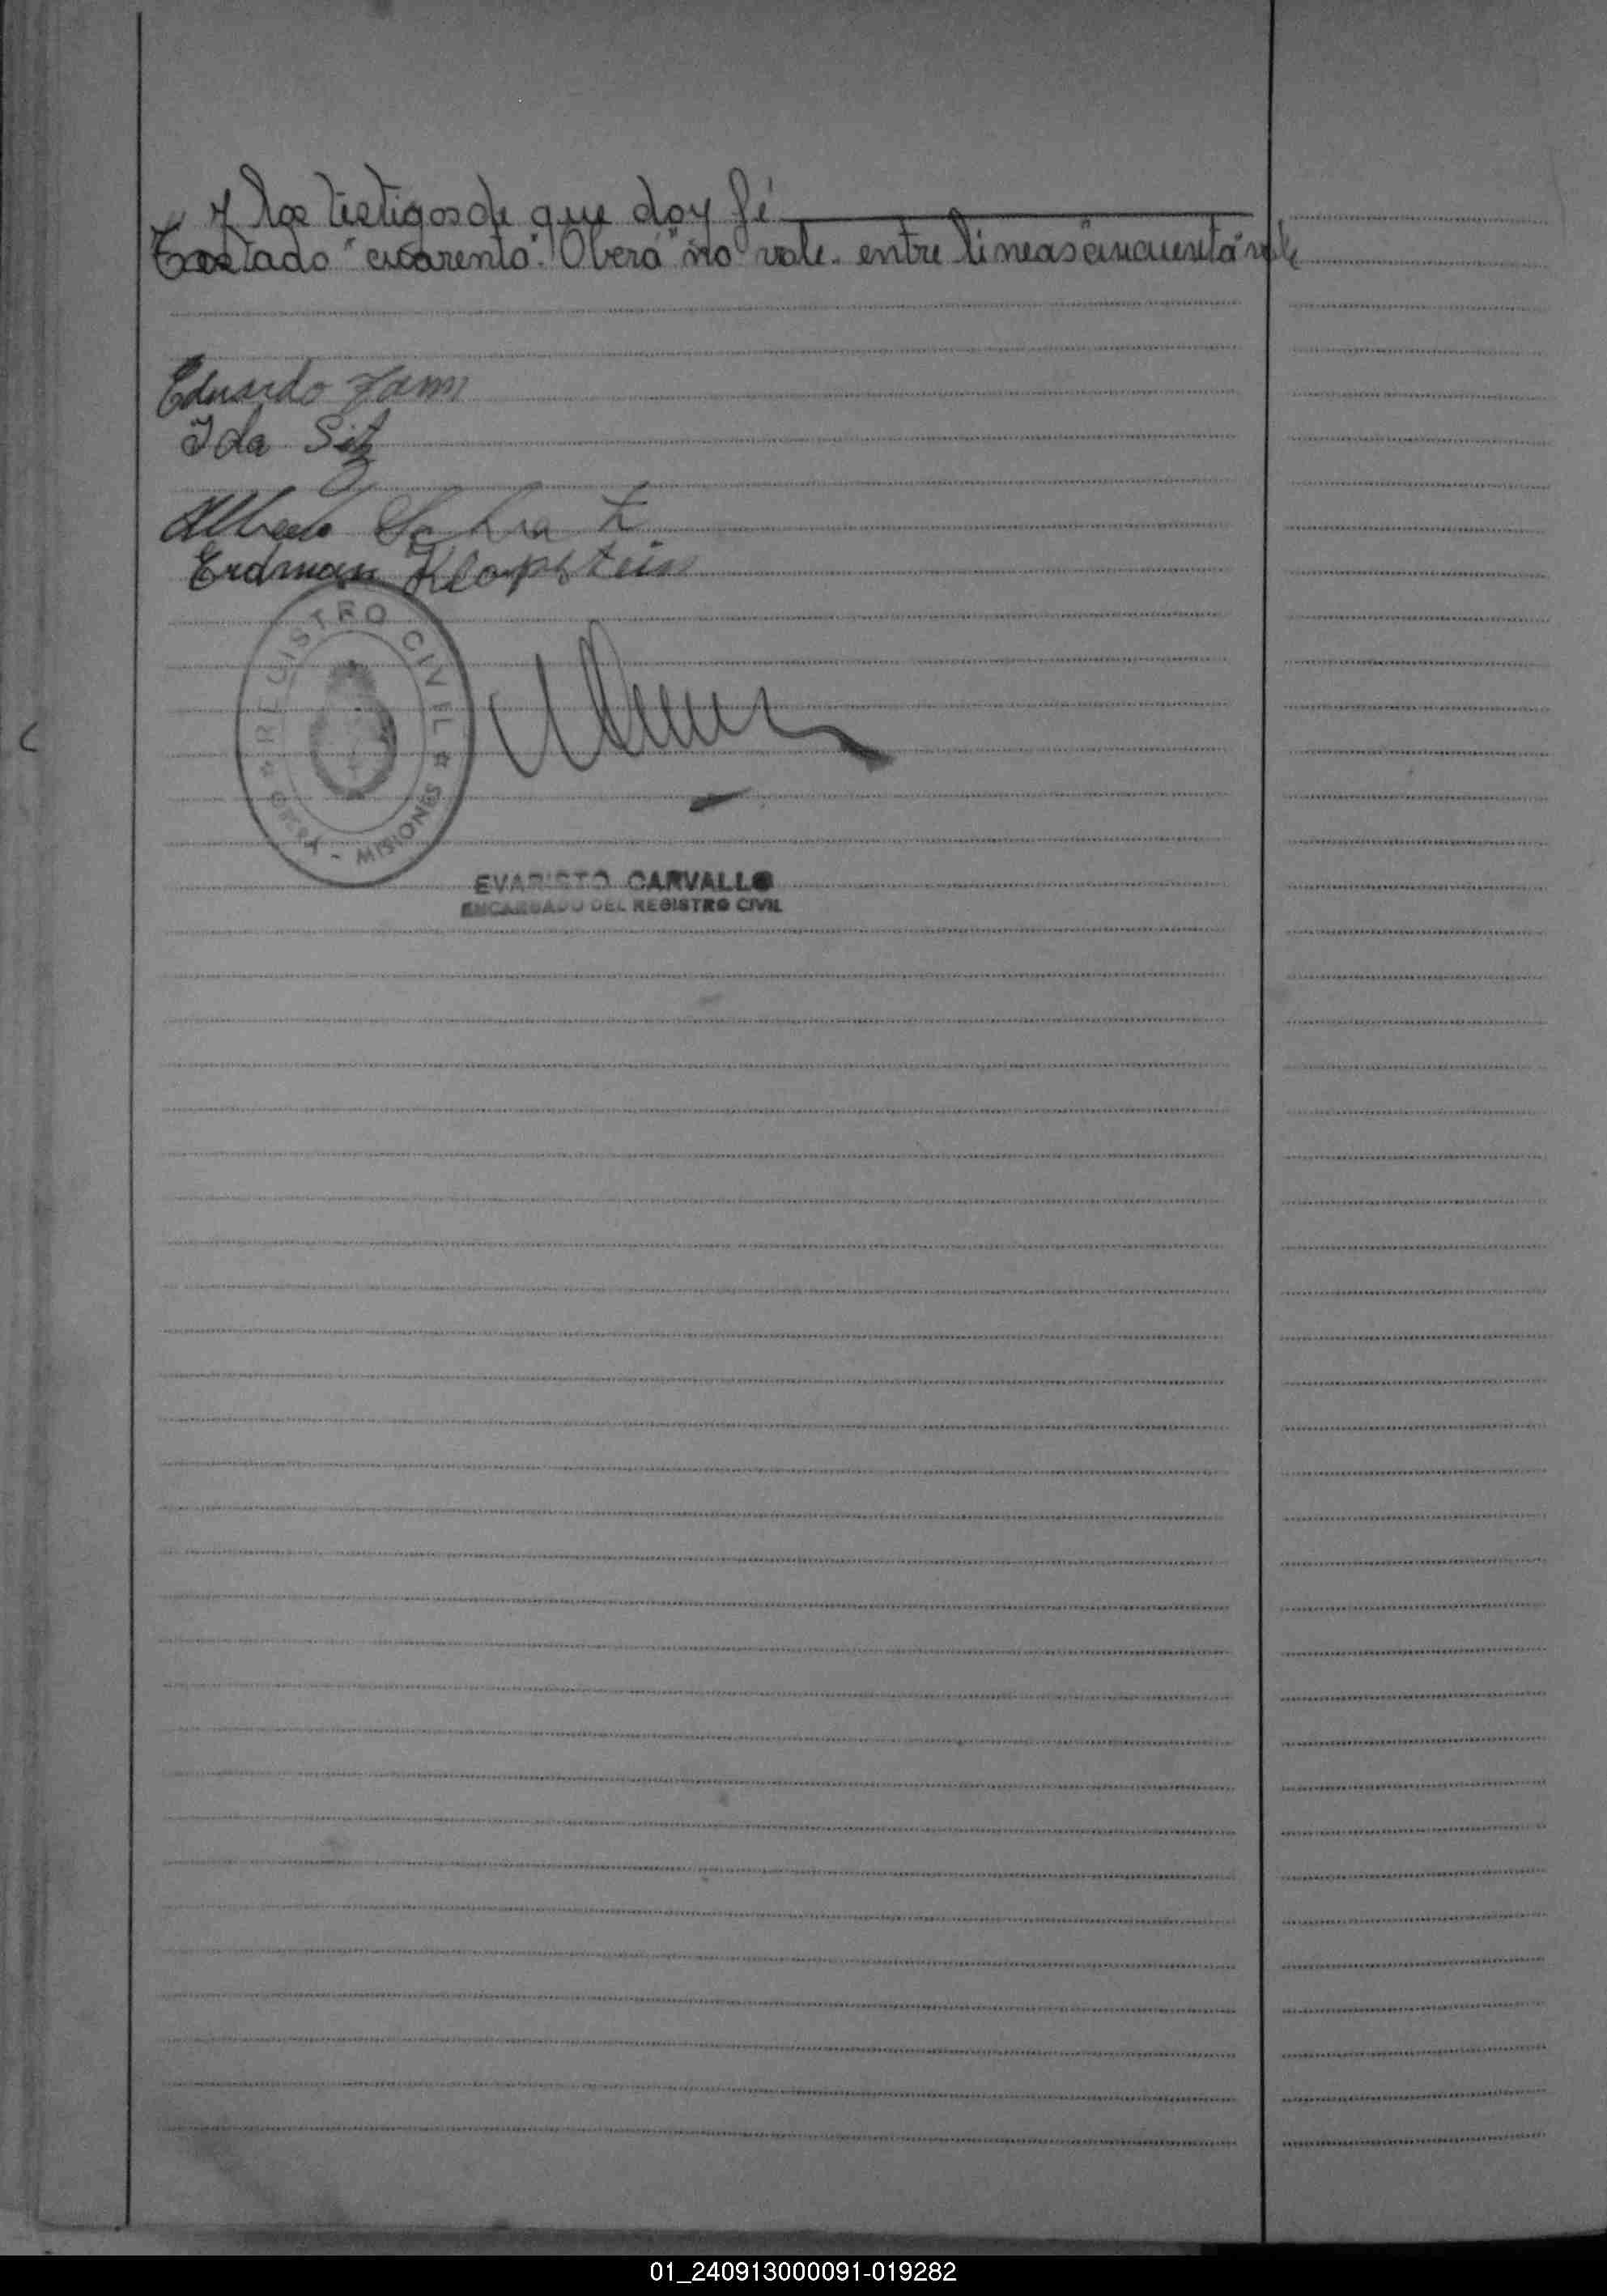 y los testigos de que doy fé
Testado "cuarenta". Oberá" no vale. entre lineas "cincuenta" vale
Eduardo
Ida
Alberto
Erdman Klopstein
REGISTRO CIVIL
OBERA - MISIONES
EVARISTO CARVALLO
ENCARGADO DEL REGISTRO CIVIL
01_240913000091-019282